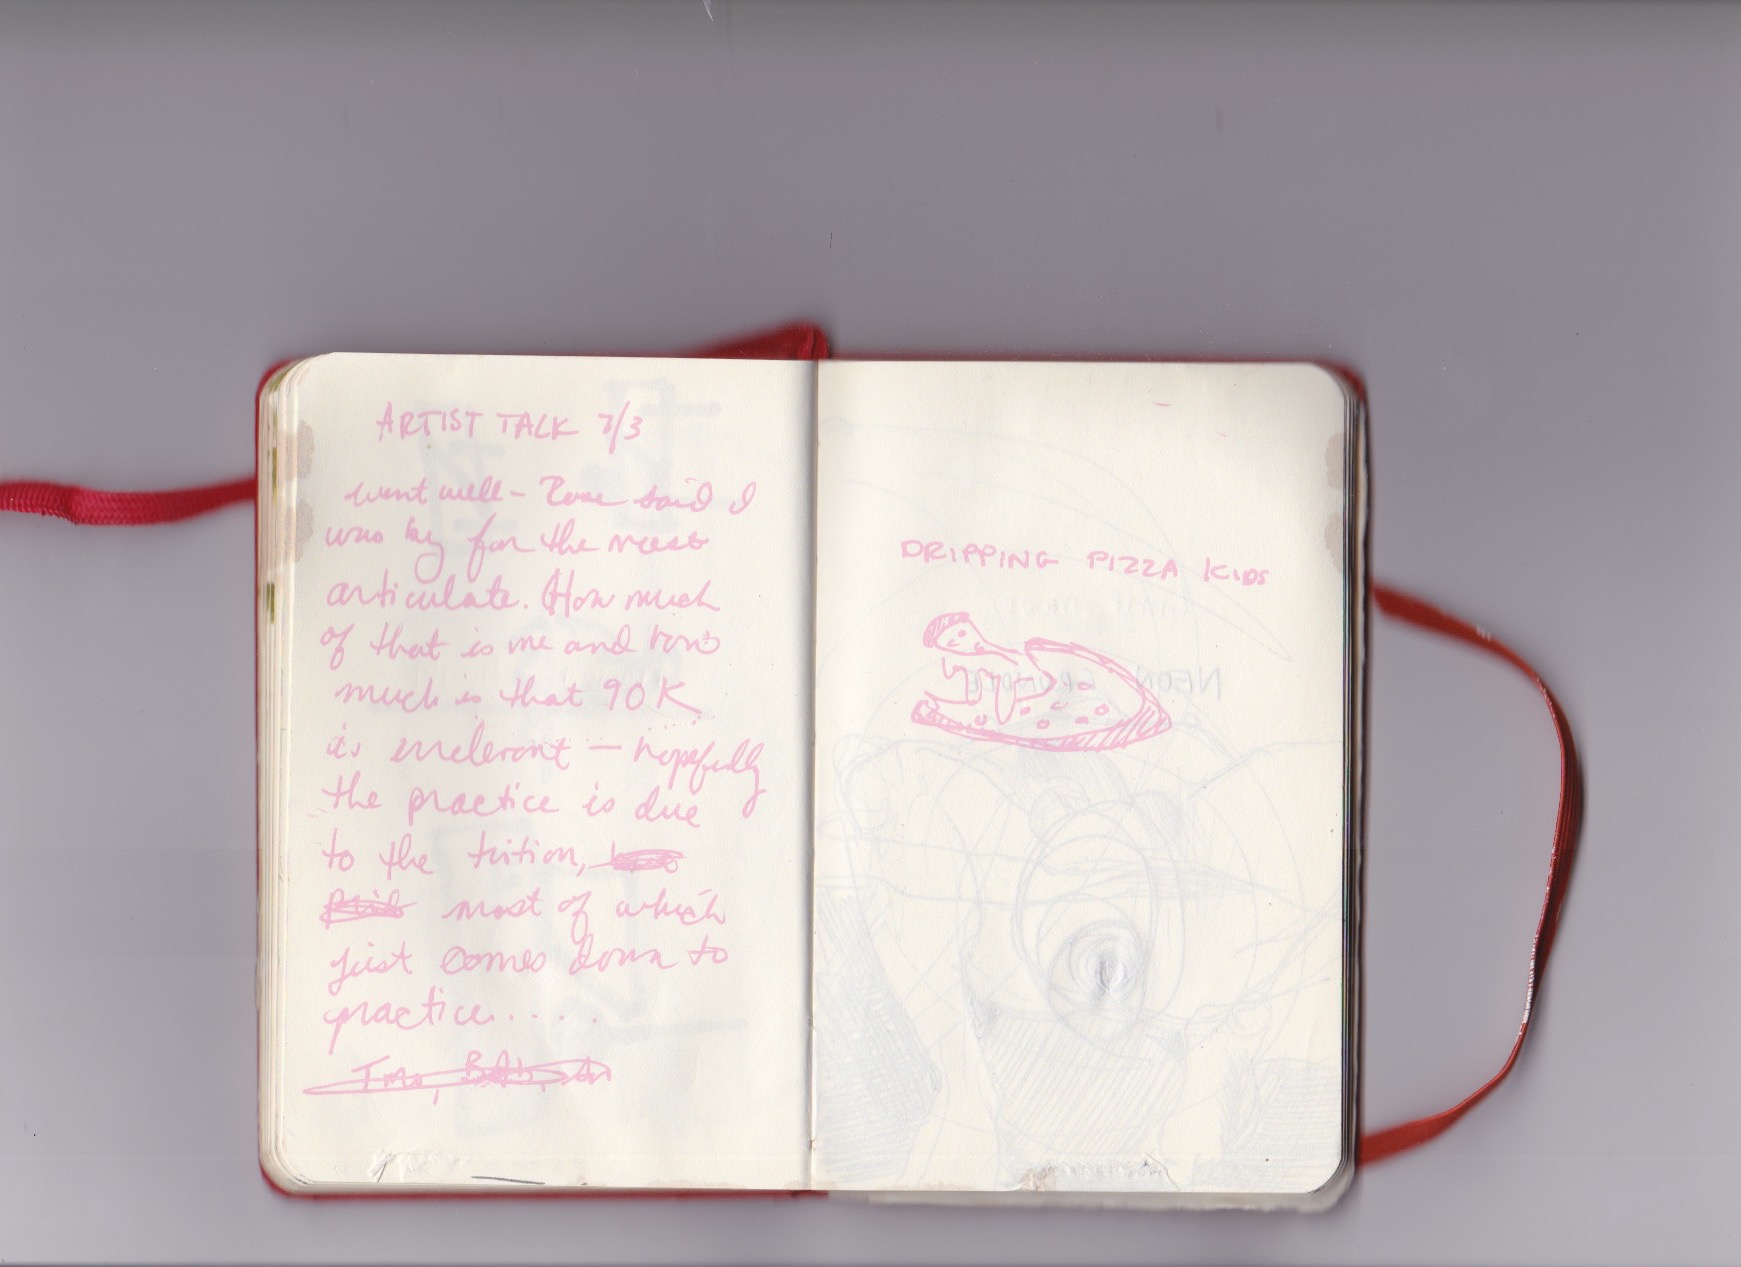 ARTIST TALK 7/3
went well - said I
was by far the most
articulate. How much
of that is me and how
much is that 90K
its irrelevant — hopefully
the practice is due
to the tuition,
most of which
just comes down to
practice.....
DRIPPING PIZZA KIDS
NEON